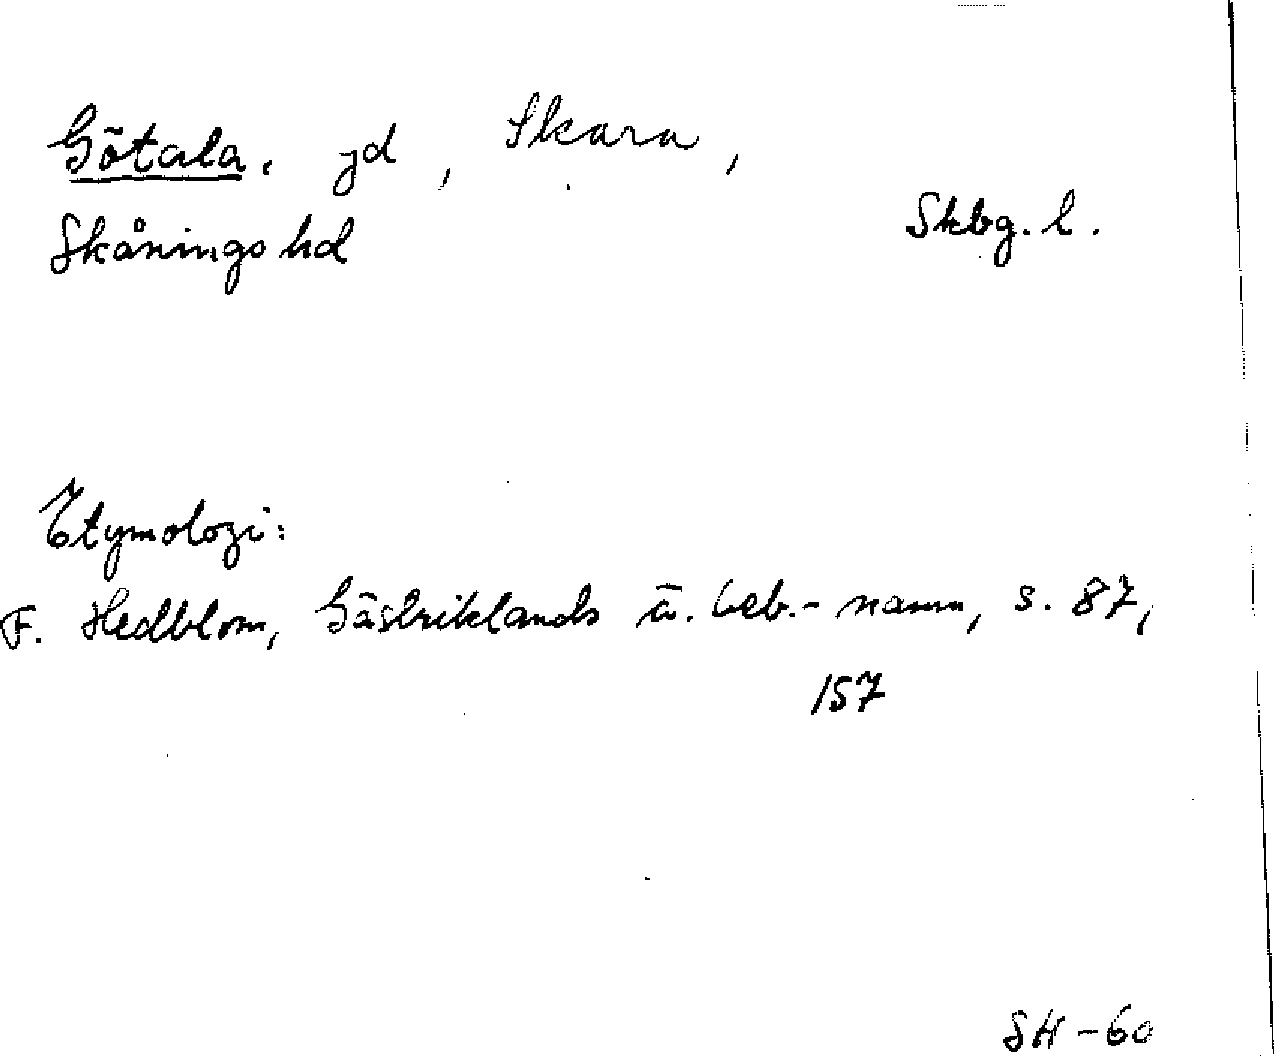 Götala, jd, Skara,
Skånings hd
Skbg. l.
Etymologi:
F. Hedblom, Gästriklands ä. beb.-namn, s. 87,
157
SH-60